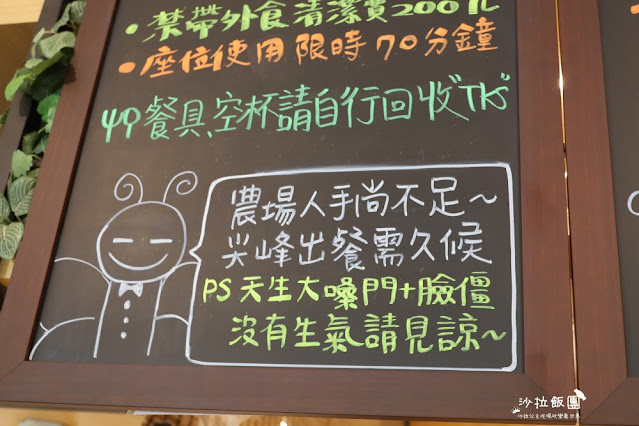 •禁帶外食清潔費200元
•座位使用限時70分鐘
吵餐具、空杯請自行回收"TKS"
農場人手尚不足~
尖峰出餐需久候
PS 天生大嗓門+臉僵
沒有生氣請見諒~
沙拉飯團